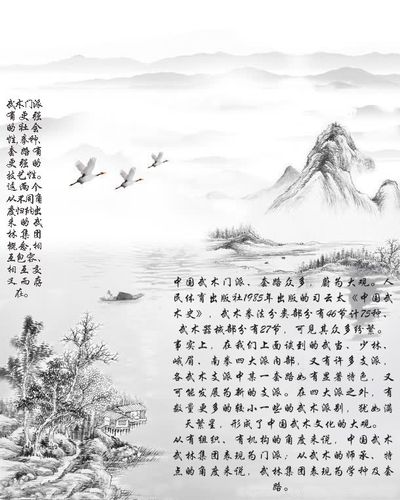 武术门派
有更强
的社会
性,拳种、
套路有
更强的
技艺性。
这两个
从不同角
度归纳出
来的武
林集团
概念,相
互包容、
相互交
叉而存
在。
中国武术门派、套路众多,蔚为大观。人
民体育出版社1985年出版的习云太《中国武
术史》,武术拳法分类部分有46节计75种、
武术器械部分有27节,可见其众多纷繁。
事实上,在我们上面谈到的武当、少林、
峨眉、南拳四大派内部,又有许多支派,
各武术支派中某一套路如有显著特色,又
可能发展为新的支派。在四大派之外,有
数量更多的较小一些的武术派别,犹如满
天繁星,形成了中国武术文化的大观。
从有组织、有机构的角度来说,中国武术
武林集团表现为门派;从武术的师承、特
点的角度来说,武林集团表现为拳种及套
路。